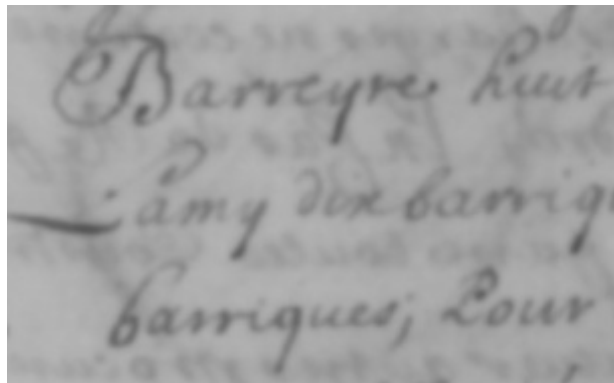 Barreyre huit
Lamy dix barriqu
barriques; Pour